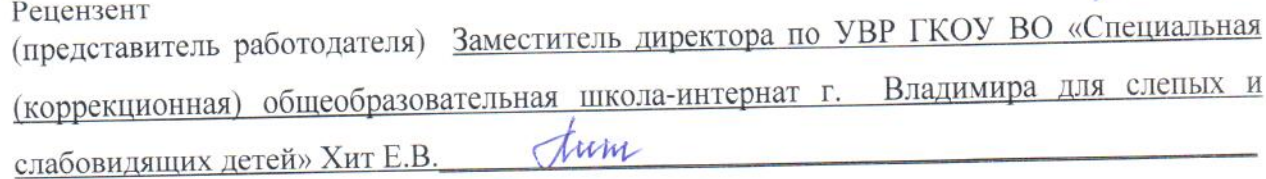 Рецензент
(представитель работодателя) Заместитель директора по УВР ГКОУ ВО «Специальная
(коррекционная) общеобразовательная школа-интернат г. Владимира для слепых и
слабовидящих детей» Хит Е.В.